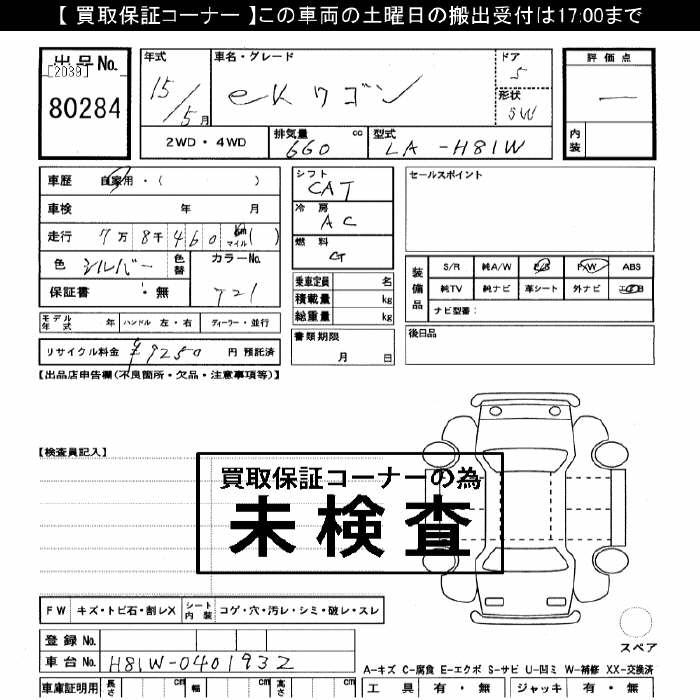 【 買取保証コーナー 】この車両の土曜日の搬出受付は17:00まで
出品No.
[2039]
80284
年式
15/5月
車名・グレード
eKワゴン
ドア
5
形状
SW
評価点
―
内装
2WD・4WD
排気量 660 cc
型式 LA -H81W
車歴 自家用・( )
車検 年 月
走行 7万 8千 460 km マイル ( )
色 シルバー 色替
カラーNo.
保証書 ・無
シフト
CAT
冷房
AC
燃料
G
乗車定員 名
積載量 kg
総重量 kg
書類期限
月 日
セールスポイント
装備品
S/R 純A/W P/S P/W ABS
純TV 純ナビ 革シート 外ナビ
ナビ型番:
後日品
モデル年式 年 ハンドル 左・右 ディーラー・並行
リサイクル料金 ¥9250 円 預託済
【出品店申告欄(不良箇所・欠品・注意事項等)】
【検査員記入】
買取保証コーナーの為
未検査
FW キズ・トビ石・割レX シート内装 コゲ・穴・汚レ・シミ・破レ・スレ
スペア
登録No.
車台No. H81W-0401932
A-キズ C-腐食 E-エクボ S-サビ U-凹ミ W-補修 XX-交換済
車庫証明用 長さ cm 幅 cm 高さ cm
工具 有・無 ジャッキ 有・無